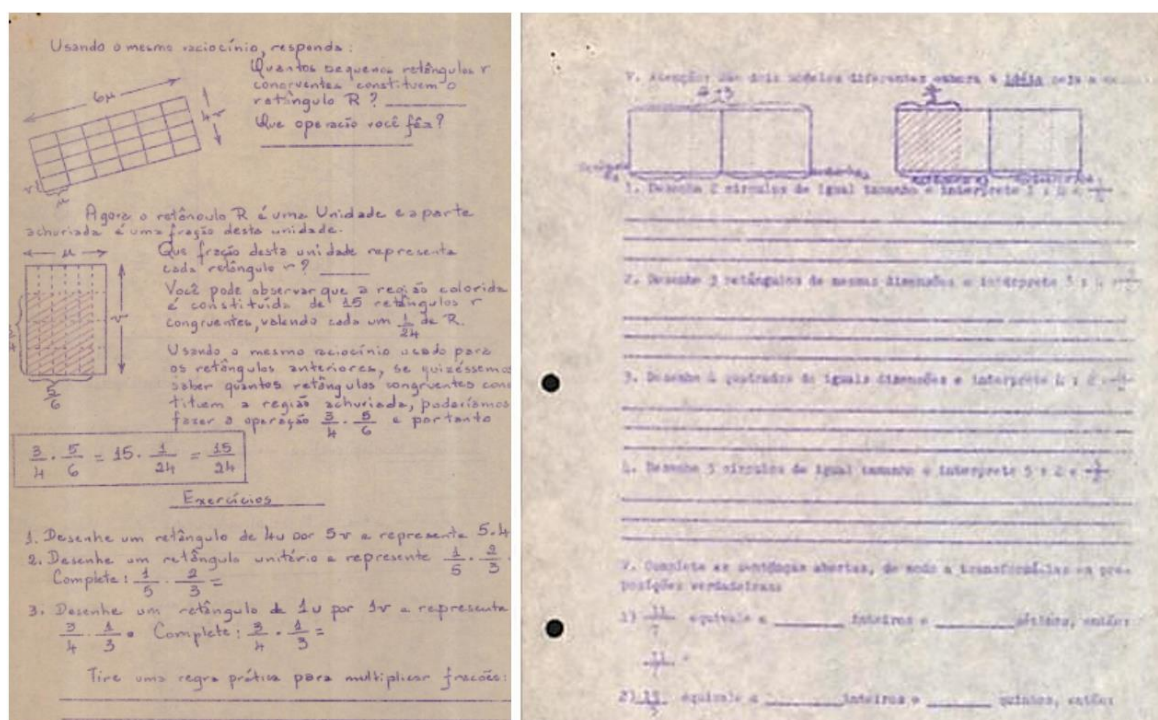 Usando o mesmo raciocínio, responda:
Quantos pequenos retângulos r
congruentes constituem o
retângulo R?
Que operação você fêz?
6μ
Agora o retângulo R é uma Unidade e a parte
achuriada é uma fração desta unidade.
Que fração desta unidade representa
cada retângulo r?
Você pode observar que a região colorida
é constituida de 15 retângulos r
congruentes, valendo cada um 1/24 de R.
Usando o mesmo raciocínio usado para
os retângulos anteriores, se quizéssemos
saber quantos retângulos congruentes cons
tituem a região achuriada, poderíamos
fazer a operação 3/4 . 5/6 e portanto
μ
5/6
3/4 . 5/6 = 15 . 1/24 = 15/24
Exercícios
1. Desenhe um retângulo de 4u por 5v e represente 5.4
2. Desenhe um retângulo unitário e represente 1/5 . 2/3
Complete: 1/5 . 2/3 =
3. Desenhe um retângulo de 1u por 1v e represente
3/4 . 1/3. Complete: 3/4 . 1/3 =
Tire uma regra prática para multiplicar frações:
V. Atenção: São dois modelos diferentes embora a idéia seja a
1. Desenhe 2 círculos de igual tamanho e interprete
2. Desenhe 3 retângulos de mesmas dimensões e interprete
3. Desenhe 4 quadrados de iguais dimensões e interprete
4. Desenhe 5 círculos de igual tamanho e interprete
V. Complete as sentenças abertas, de modo a transformá-las em pro-
posições verdadeiras:
1) 11/7 equivale a inteiros e sétimos, então:
11/7
2) equivale a inteiros e quintos, então: